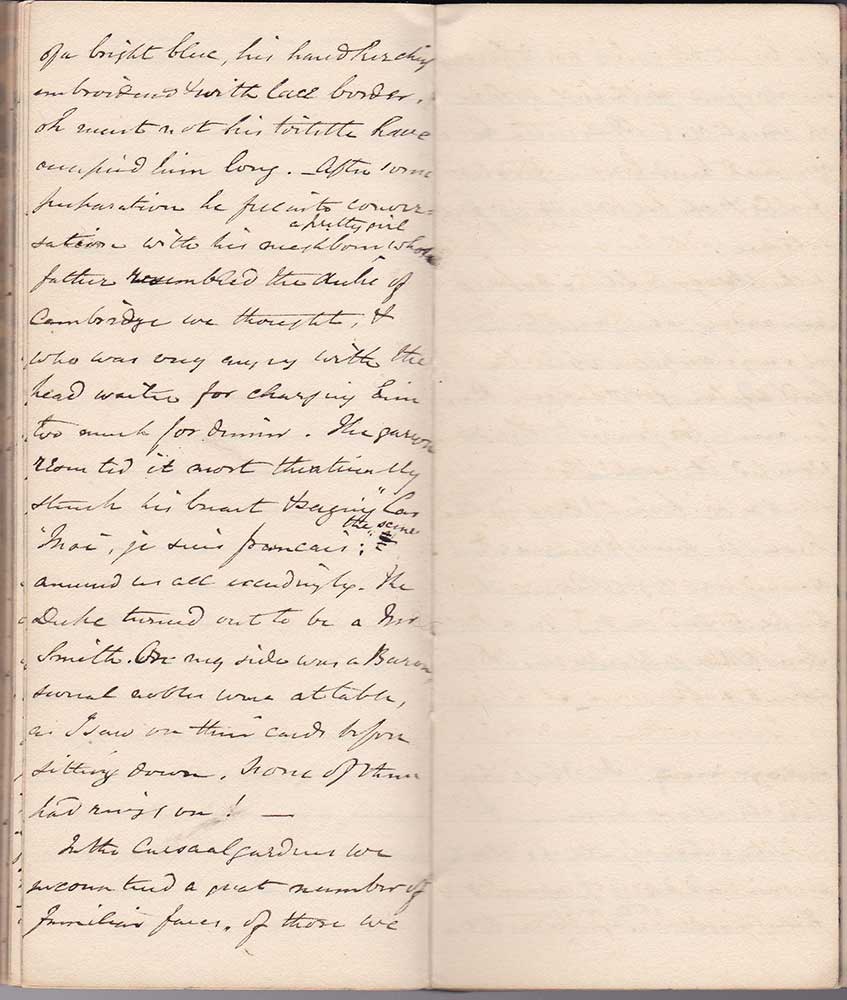 of a bright blue, his handkerchief
embroidered & with lace border,
oh must not his toilette have
occupied him long. – After some
preparation he fell into conver=
a pretty girl
sation with his neighbour whose
father resembled the duke of
Cambridge we thought, &
who was very angry with the
head waiter for charging him
too much for dinner. The garcon
resented it most theatrically
struck his breast & saying "Car
the scene
"Moi, je suis francais;"
amused us all exceedingly. The
Duke turned out to be a Mr
Smith. On my side was a Baron
several nobles were at table,
as I saw on their cards before
sitting down. None of them
had rings on! —
In the Cursaal gardens we
encountered a great number of
familiar faces, of those we